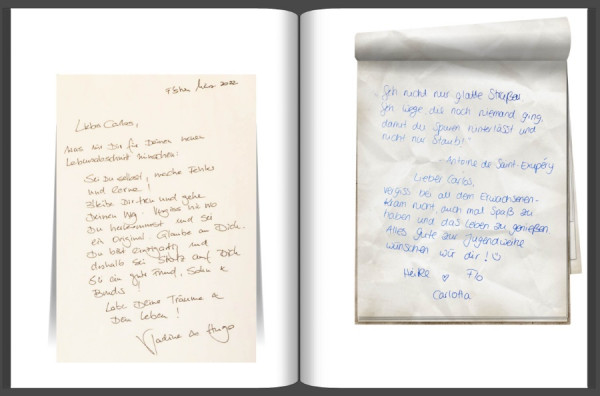 März 2022
Lieber Carlos,
was wir Dir für Deinen neuen
Lebensabschnitt wünschen:
Sei Du selbst, mache Fehler
und lerne!
Bleibe Dir treu und gehe
Deinen Weg. Vergiss nie wo
Du herkommst und sei
ein Original. Glaube an Dich.
Du bist einzigartig und
deshalb sei Stolz auf Dich
Sei ein guter Freund, Sohn &
Bruder!
Lebe Deine Träume &
Dein Leben!
Nadine &
"Geh nicht nur glatte Straßen
Geh Wege, die noch niemand ging,
damit du Spuren hinterlässt und
nicht nur Staub!"
- Antoine de Saint-Exupéry
Lieber Carlos,
vergiss bei all dem Erwachsenen-
kram nicht, auch mal Spaß zu
haben und das Leben zu genießen
Alles Gute zur Jugendweihe
wünschen wir dir!
Heike Flo
Carlotta